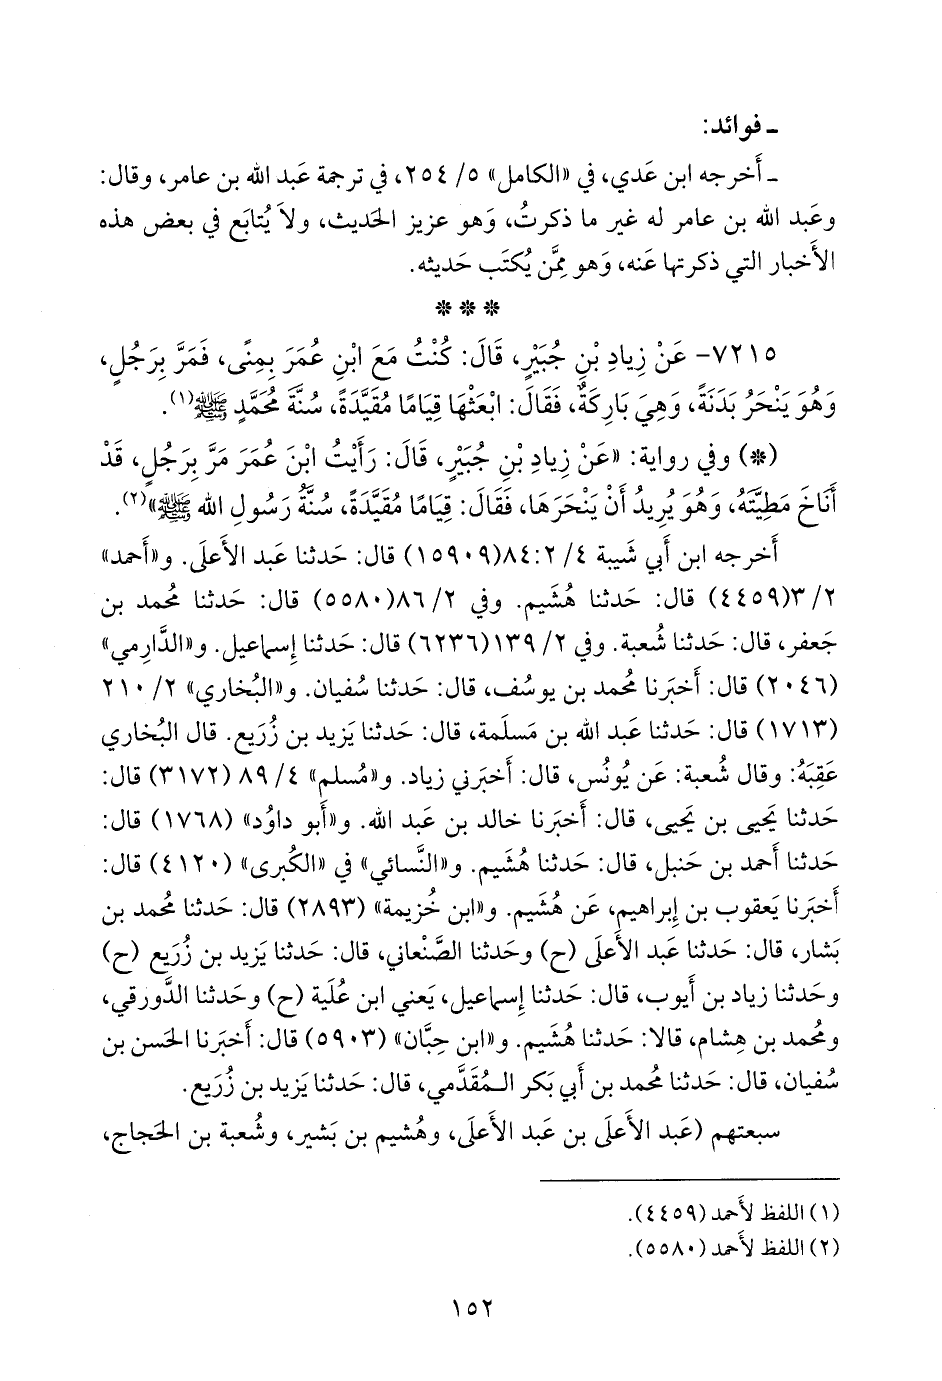 ـ فوائد:
ـ أَخرجه ابن عَدي، في «الكامل» ٥/ ٢٥٤، في ترجمة عَبد الله بن عامر، وقال:
وعَبد الله بن عامر له غير ما ذكرتُ، وَهو عزيز الحَديث، ولاَ يُتابَع في بعض هذه
الأَخبار التي ذكرتها عَنه، وَهو مِمَّن يُكتَب حَديثه.
* * *
٧٢١٥- عَنْ زِيادِ بْنِ جُبَيْرٍ، قَالَ: كُنْتُ مَعَ ابْنِ عُمَرَ بِمِنًى، فَمَرَّ بِرَجُلٍ،
وَهُوَ يَنْحَرُ بَدَنَةً، وَهِيَ بَارِكَةٌ، فَقَالَ: ابْعَثْهَا قِيَامًا مُقَيَّدَةً، سُنَّةَ مُحَمَّدٍ ﷺ(١).
(*) وفي رواية: «عَنْ زِيادِ بْنِ جُبَيْرٍ، قَالَ: رَأَيْتُ ابْنَ عُمَرَ مَرَّ بِرَجُلٍ، قَدْ
أَنَاخَ مَطِيَّتَهُ، وَهُوَ يُرِيدُ أَنْ يَنْحَرَهَا، فَقَالَ: قِيَامًا مُقَيَّدَةً، سُنَّةُ رَسُولِ الله ﷺ»(٢).
أَخرجه ابن أَبي شَيبة ٤/ ٢:‏٨٤(١٥٩٠٩) قال: حَدثنا عَبد الأَعلَى. و«أَحمد»
٢/ ٣(٤٤٥٩) قال: حَدثنا هُشَيم. وفي ٢/ ٨٦(٥٥٨٠) قال: حَدثنا مُحمد بن
جَعفر، قال: حَدثنا شُعبة. وفي ٢/ ١٣٩(٦٢٣٦) قال: حَدثنا إِسماعيل. و«الدَّارِمي»
(٢٠٤٦) قال: أَخبَرنا مُحمد بن يوسُف، قال: حَدثنا سُفيان. و«البُخاري» ٢/ ٢١٠
(١٧١٣) قال: حَدثنا عَبد الله بن مَسلَمة، قال: حَدثنا يَزيد بن زُرَيع. قال البُخاري
عَقِبَهُ: وقال شُعبة: عَن يُونُس، قال: أَخبَرني زياد. و«مُسلم» ٤/ ٨٩ (٣١٧٢) قال:
حَدثنا يَحيى بن يَحيى، قال: أَخبَرنا خالد بن عَبد الله. و«أَبو داوُد» (١٧٦٨) قال:
حَدثنا أَحمد بن حَنبل، قال: حَدثنا هُشَيم. و«النَّسائي» في «الكُبرى» (٤١٢٠) قال:
أَخبَرنا يَعقوب بن إِبراهيم، عَن هُشَيم. و«ابن خُزيمة» (٢٨٩٣) قال: حَدثنا مُحمد بن
بَشار، قال: حَدثنا عَبد الأَعلَى (ح) وحَدثنا الصَّنْعاني، قال: حَدثنا يَزيد بن زُرَيع (ح)
وحَدثنا زياد بن أَيوب، قال: حَدثنا إِسماعيل، يَعني ابن عُلَية (ح) وحَدثنا الدَّورقي،
ومُحمد بن هِشام، قالا: حَدثنا هُشَيم. و«ابن حِبَّان» (٥٩٠٣) قال: أَخبَرنا الحَسن بن
سُفيان، قال: حَدثنا مُحمد بن أَبي بَكر الـمُقَدَّمي، قال: حَدثنا يَزيد بن زُرَيع.
سبعتهم (عَبد الأَعلَى بن عَبد الأَعلَى، وهُشيم بن بَشير، وشُعبة بن الحَجاج،
(١) اللفظ لأَحمد (٤٤٥٩).
(٢) اللفظ لأَحمد (٥٥٨٠).
١٥٢